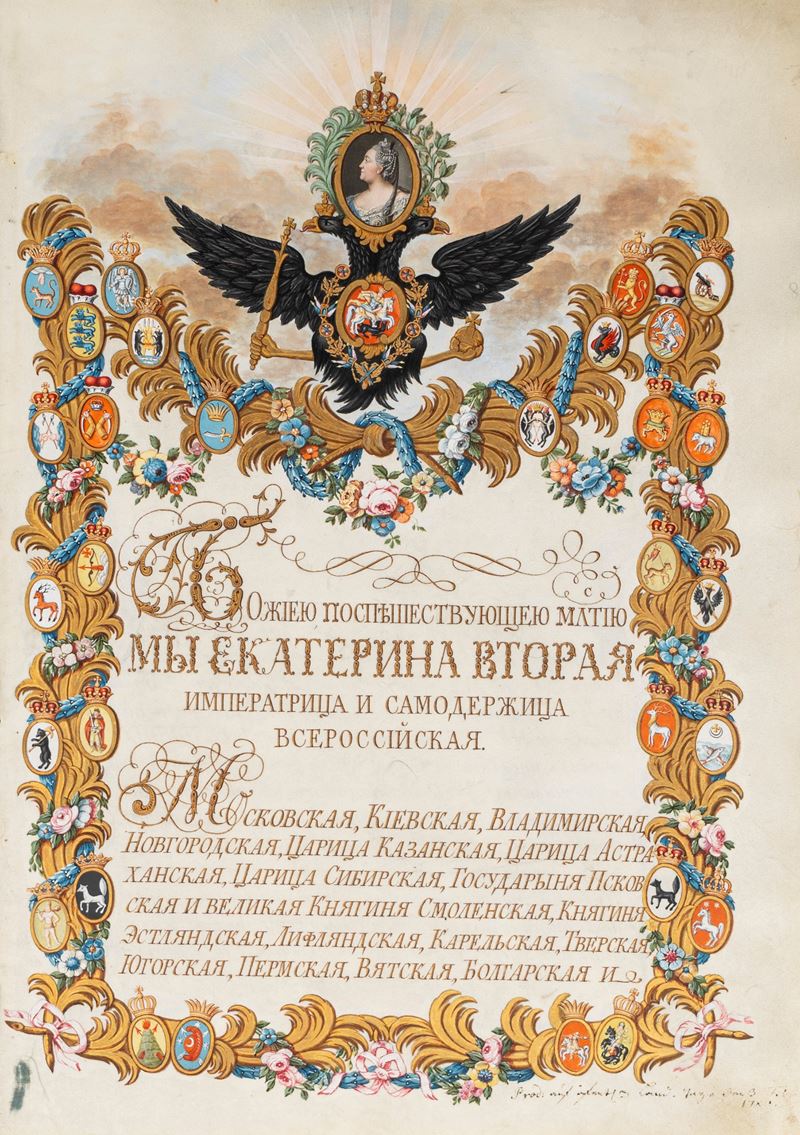 Божіею поспѣшествующею млтію
МЫ ЕКАТЕРИНА ВТОРАЯ
ИМПЕРАТРИЦА И САМОДЕРЖИЦА
ВСЕРОССІЙСКАЯ.
Московская, Кіевская, Владимирская
Новгородская, Царица Казанская, Царица Астра
ханская, Царица Сибирская, Государыня Псков
ская и великая Княгиня Смоленская, Княгиня
Эстляндская, Лифляндская, Карельская, Тверская
Югорская, Пермская, Вятская, Болгарская и
Prod.